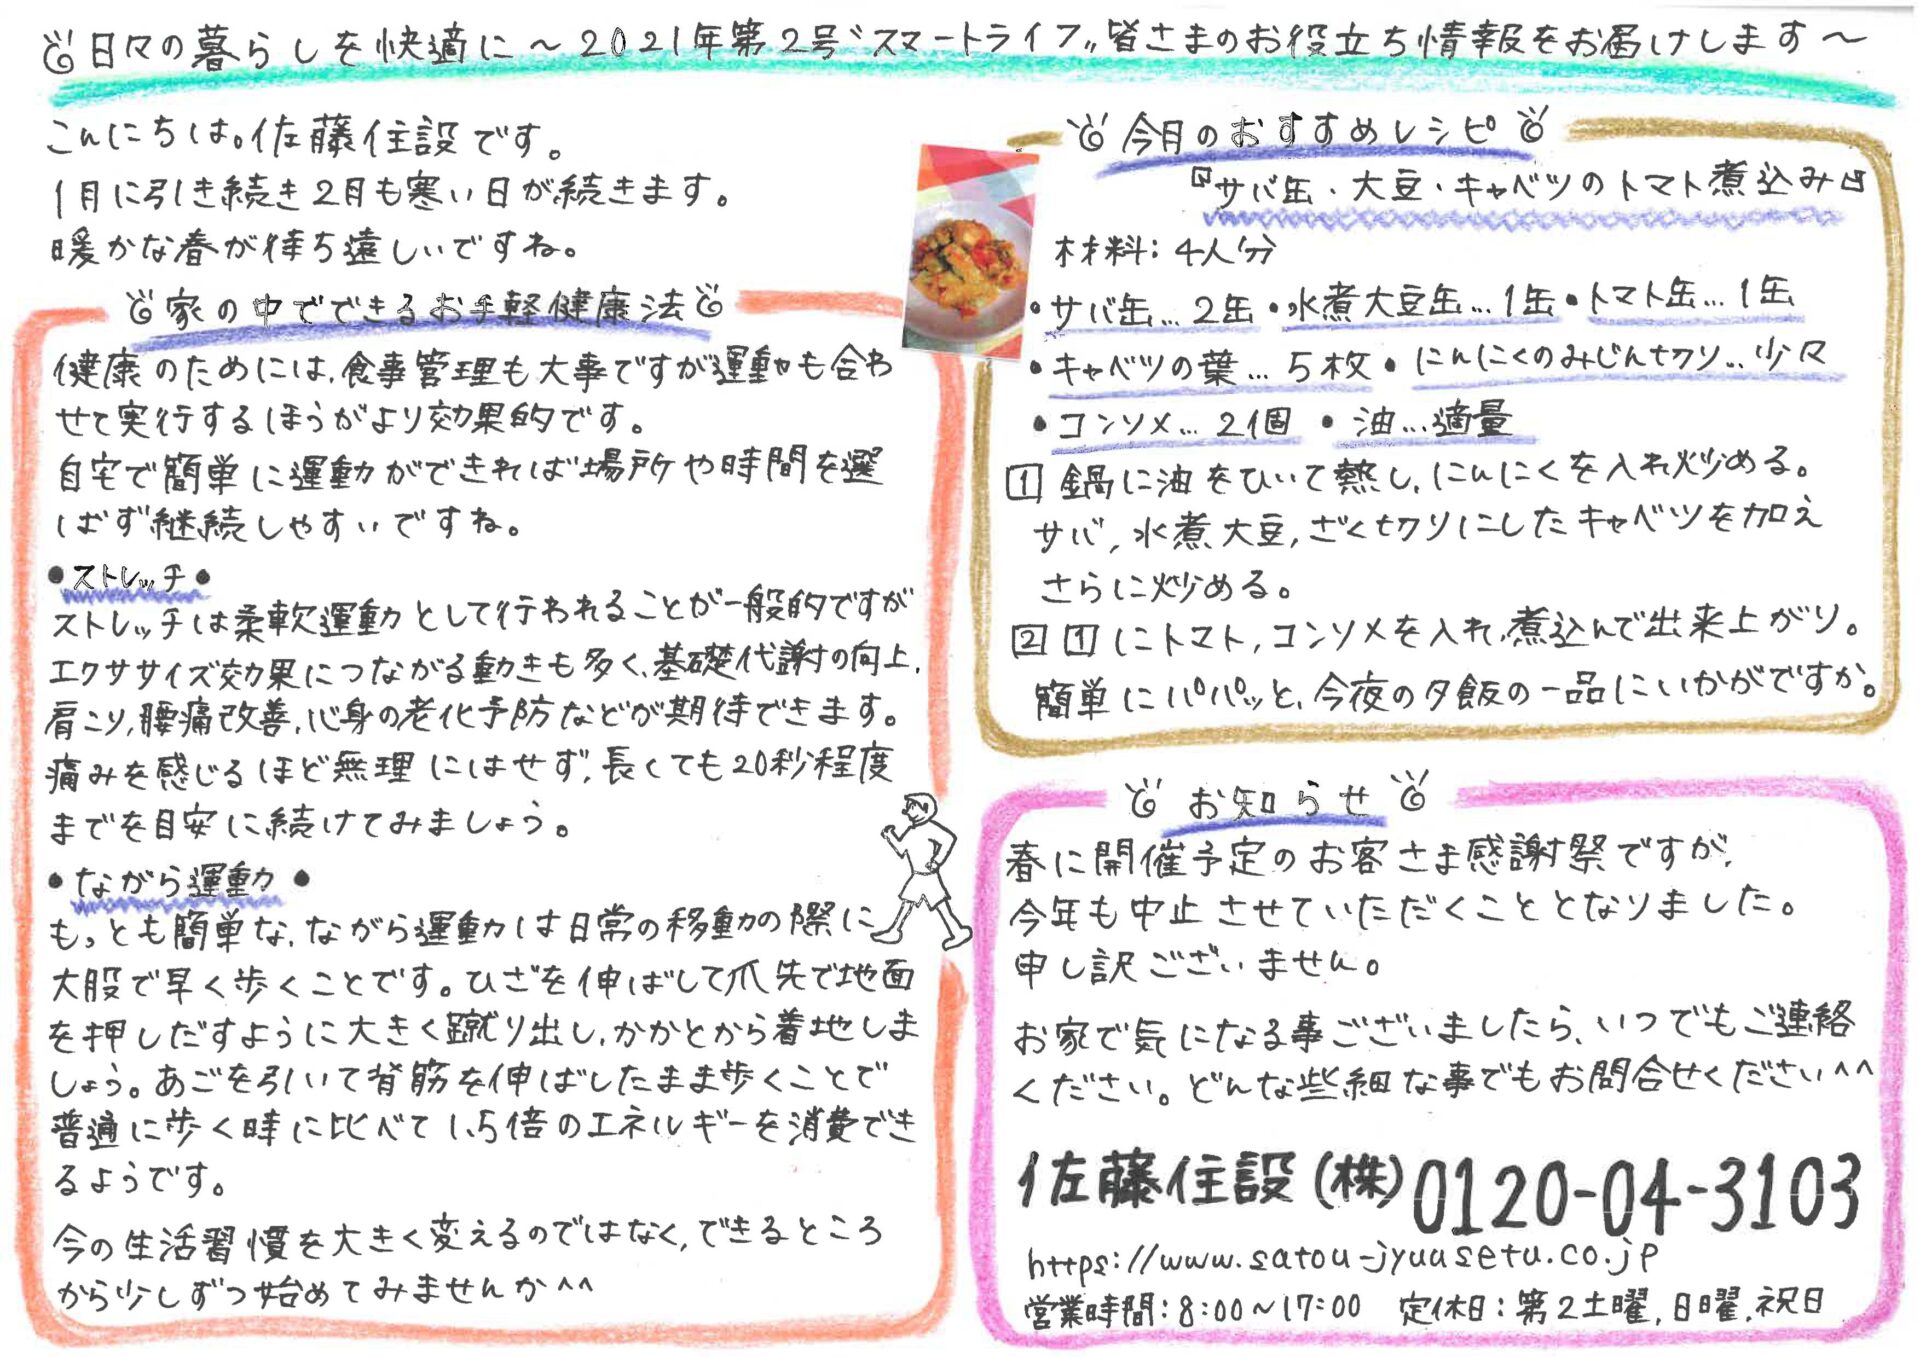 日々の暮らしを快適に～2021年第2号〝スマートライフ〟皆さまのお役立ち情報をお届けします～
こんにちは。佐藤住設です。
1月に引き続き2月も寒い日が続きます。
暖かな春が待ち遠しいですね。
家の中でできるお手軽健康法
健康のためには、食事管理も大事ですが運動も合わ
せて実行するほうがより効果的です。
自宅で簡単に運動ができれば場所や時間を選
ばず継続しやすいですね。
•ストレッチ•
ストレッチは柔軟運動として行われることが一般的ですが
エクササイズ効果につながる動きも多く、基礎代謝の向上、
肩こり、腰痛改善、心身の老化予防などが期待できます。
痛みを感じるほど無理にはせず、長くても20秒程度
までを目安に続けてみましょう。
•ながら運動•
もっとも簡単な、ながら運動は日常の移動の際に
大股で早く歩くことです。ひざを伸ばして爪先で地面
を押しだすように大きく蹴り出し、かかとから着地しま
しょう。あごを引いて背筋を伸ばしたまま歩くことで
普通に歩く時に比べて1.5倍のエネルギーを消費でき
るようです。
今の生活習慣を大きく変えるのではなく、できるところ
から少しずつ始めてみませんか^^
今月のおすすめレシピ
『サバ缶・大豆・キャベツのトマト煮込み』
材料：4人分
•サバ缶…2缶•水煮大豆缶…1缶•トマト缶…1缶
•キャベツの葉…5枚•にんにくのみじん切り…少々
•コンソメ…2個•油…適量
1 鍋に油をひいて熱し、にんにくを入れ炒める。
サバ、水煮大豆、ざく切りにしたキャベツを加え
さらに炒める。
2 1にトマト、コンソメを入れ、煮込んで出来上がり。
簡単にパパッと、今夜の夕飯の一品にいかがですか。
お知らせ
春に開催予定のお客さま感謝祭ですが、
今年も中止させていただくこととなりました。
申し訳ございません。
お家で気になる事ございましたら、いつでもご連絡
ください。どんな些細な事でもお問合せください^^
佐藤住設(株)0120-04-3103
https://www.satou-jyuusetu.co.jp
営業時間：8:00～17:00 定休日：第2土曜、日曜、祝日